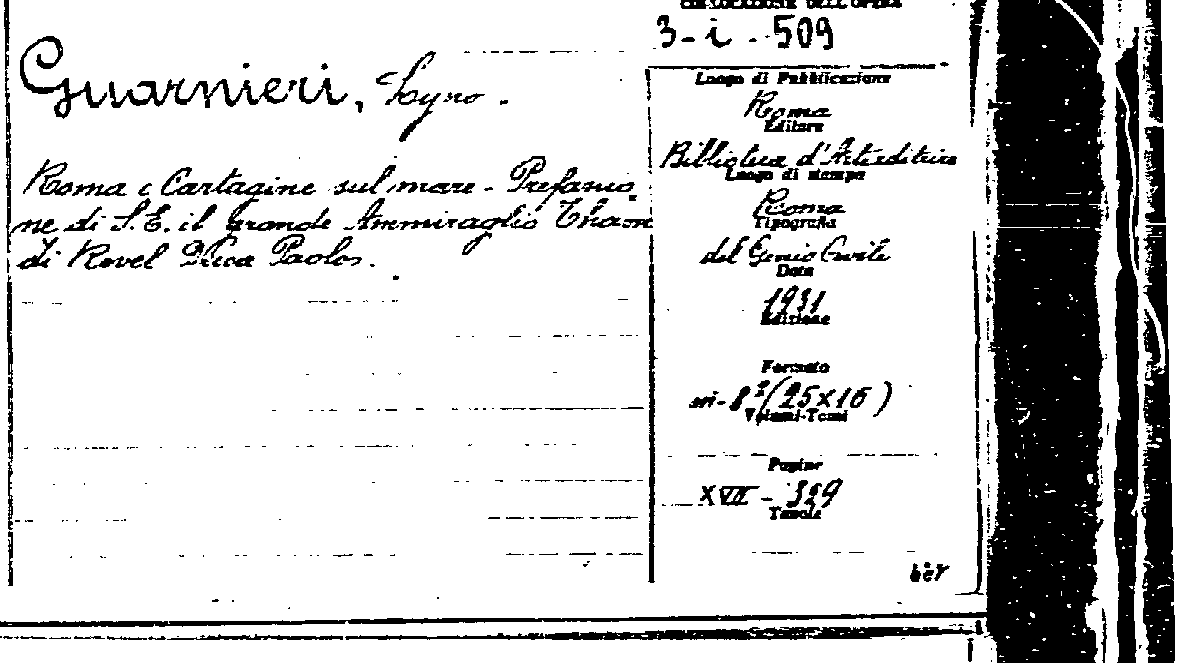 COLLOCAZIONE DELL'OPERA
3-i-509
Guarnieri, Lyno.
Roma e Cartagine sul mare - Prefazio
ne di S.E. il Grande Ammiraglio Thaon
di Revel Duca Paolo.
Luogo di Pubblicazione
Roma
Editore
Biblioteca d'Arte editrice
Luogo di stampa
Roma
Tipografia
del Genio Civile
Data
1931
Edizione
Formato
in-8° (25x16)
Volumi-Tomi
Pagine
XVII - 329
Tavole